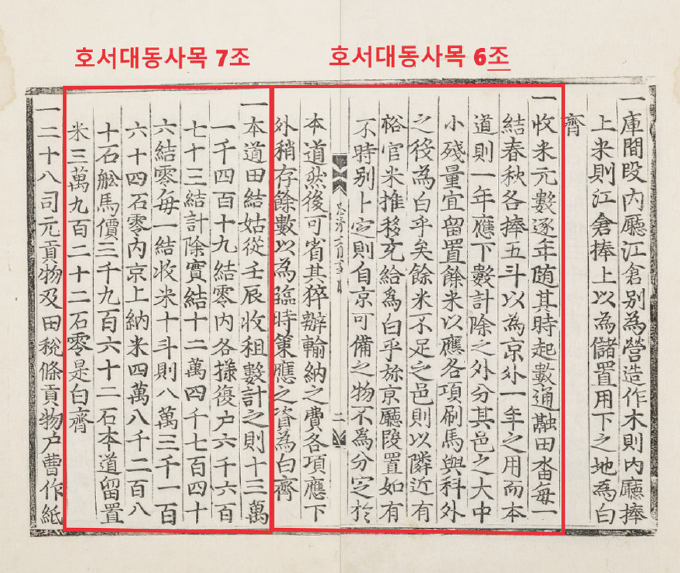 호서대동사목 7조
호서대동사목 6조
一庫間段內廳江倉別為營造作木則內廳捧
上米則江倉捧上以為儲置用下之地為白
齊
一收米元數逐年随其時起數通融田畓每一
結春秋各捧五斗以為京外一年之用而本
道則一年應下數計除之外分其邑之大中
小殘量宜留置餘米以應各項刷馬與科外
之役為白乎矣餘米不足之邑則以隣近有
裕官米推移充給為白乎旀京廳段置如有
不時別卜定則自京可備之物不為分定於
二
本道然後可省其猝辦輸納之費各項應下
外稍存餘數以為臨時策應之資為白齊
一本道田結姑從壬辰收租數計之則十三萬
一千四百十九結零內各㨾復戶六千六百
七十三結計除實結十二萬四千七百四十
六結零每一結收米十斗則八萬三千一百
六十四石零內京上納米四萬八千二百八
十石舩馬價三千九百六十二石本道留置
米三萬九百二十二石零是白齊
一二十八司元貢物及田稅條貢物戶曹作紙